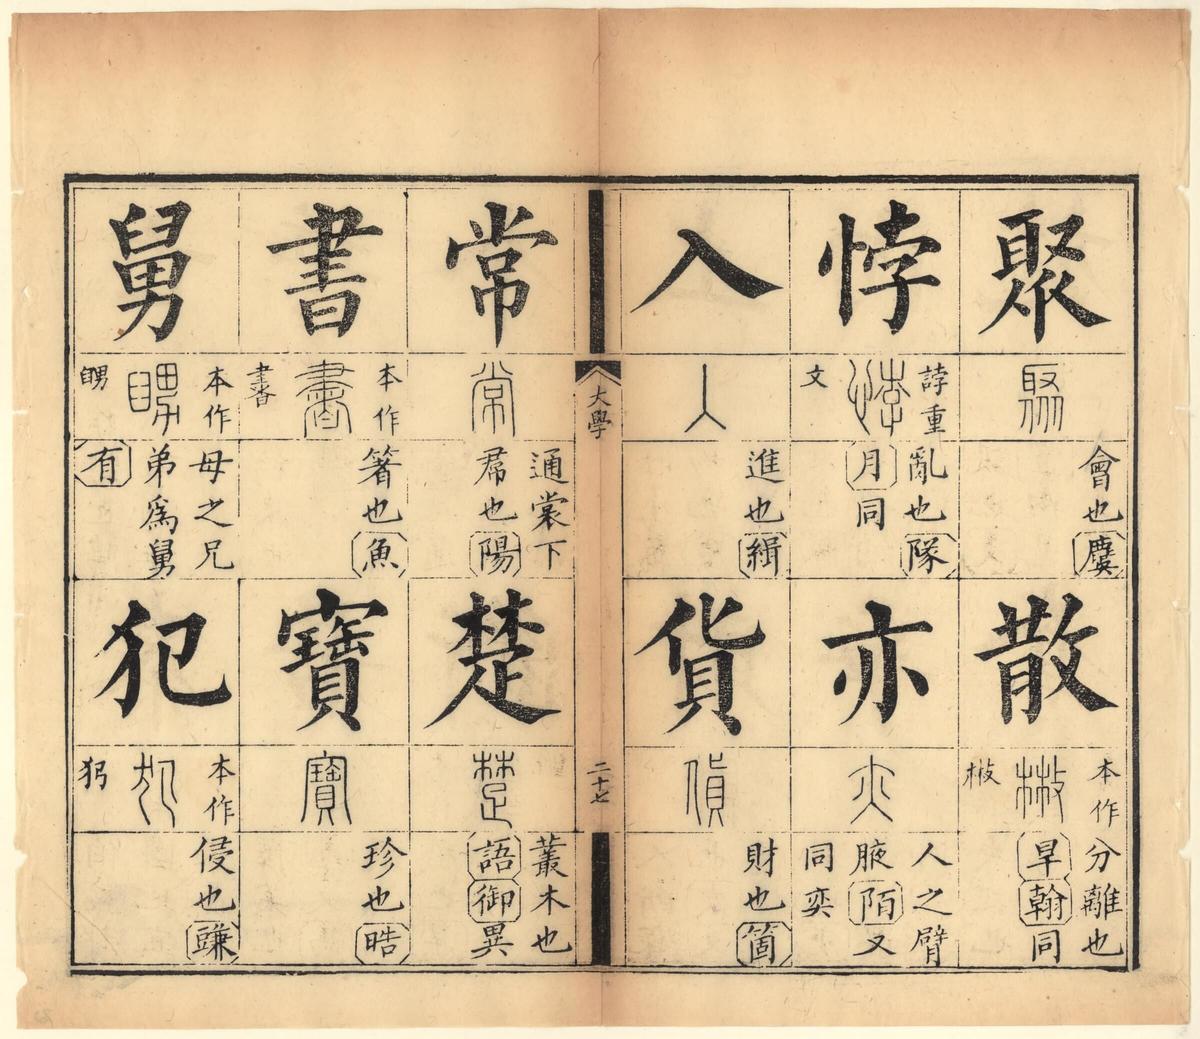 聚
會也麌
散
本作
㪔
分離也
旱翰同
悖
誖重
文
亂也隊
月同
亦
人之臂
腋陌又
同奕
入
進也緝
貨
財也箇
大學
二十七
常
通裳下
帬也陽
楚
叢木也
語御異
書
本作
箸也魚
寶
珍也晧
舅
本作
母之兄
弟為舅
有
犯
本作
侵也豏